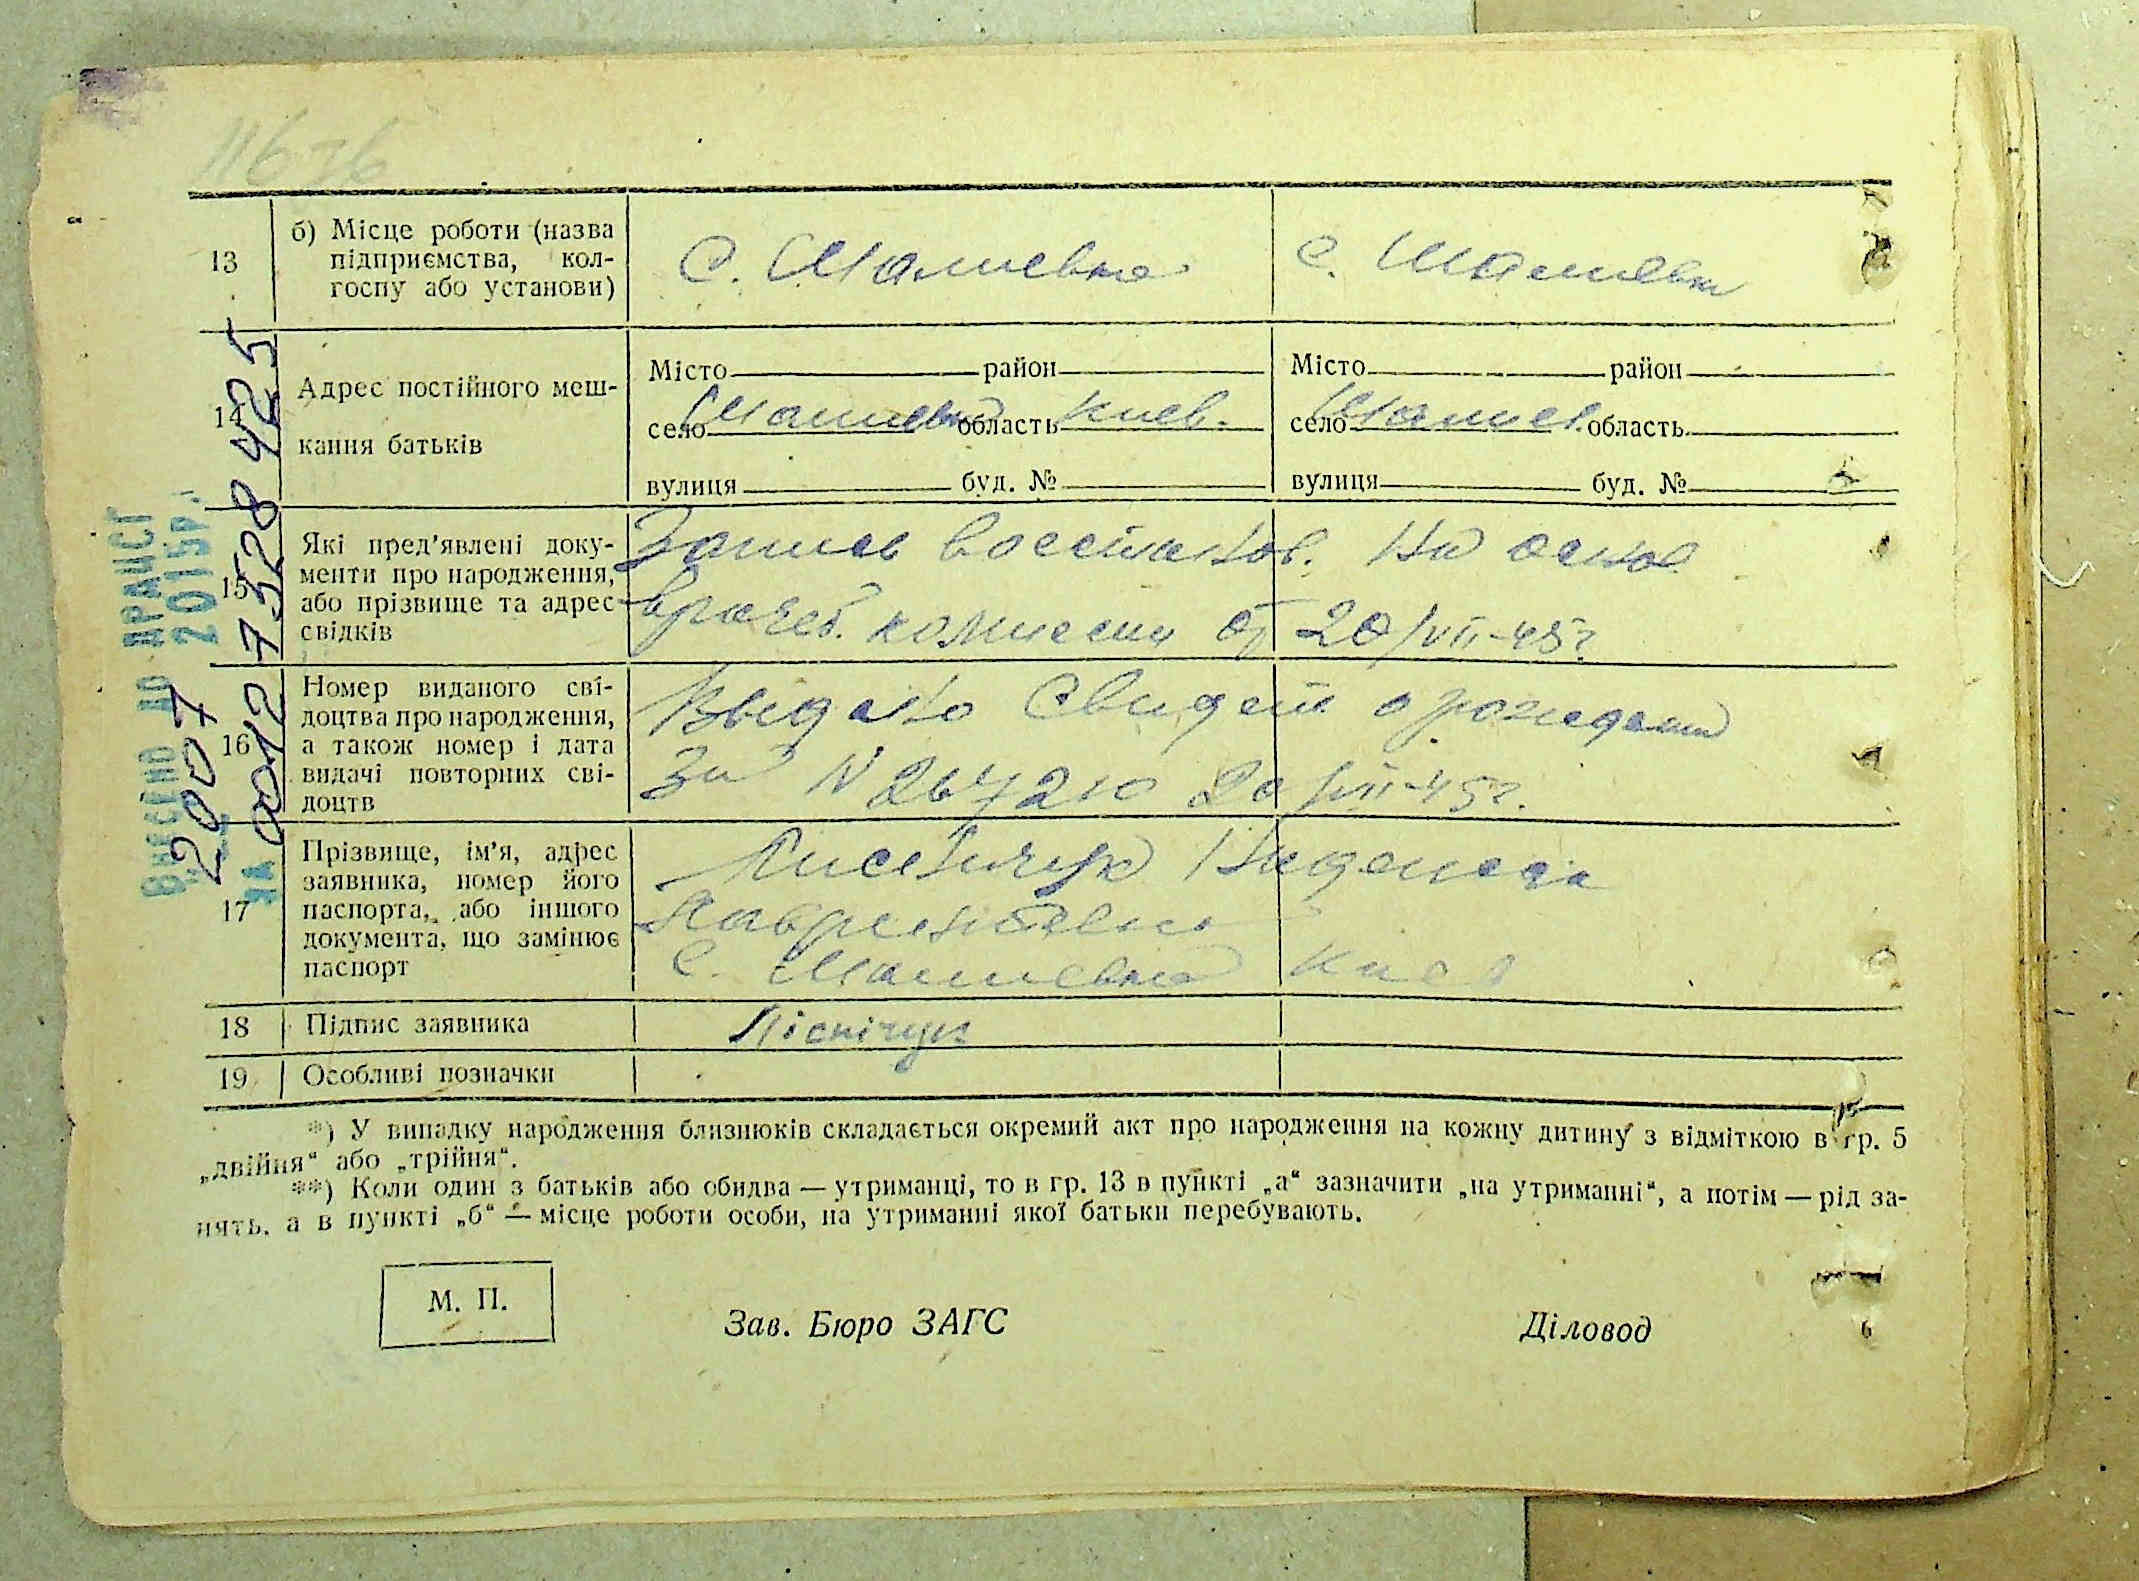 11676
13
б) Місце роботи (назва
підприємства, кол-
госпу або установи)
14
Адрес постійного меш-
кання батьків
Місто район
село область Киев.
вулиця буд. №
Місто район
село область
вулиця буд. №
15
Які пред'явлені доку-
менти про народження,
або прізвище та адрес
свідків
Запись восстанов. На основ
врачеб. комиссии от 20/VII-45г.
16
Номер виданого сві-
доцтва про народження,
а також номер і дата
видачі повторних сві-
доцтв
Выдано Свидет о рождении
за N 267210 20/VII-45г.
17
Прізвище, ім'я, адрес
заявника, номер його
паспорта, або іншого
документа, що замінює
паспорт
Надежда
Лаврентьевна
18
Підпис заявника
19
Особливі позначки
*) У випадку народження близнюків складається окремий акт про народження на кожну дитину з відміткою в гр. 5
„двійня“ або „трійня“.
**) Коли один з батьків або обидва — утриманці, то в гр. 13 в пункті „а“ зазначити „на утриманні“, а потім — рід за-
нять, а в пункті „б“ — місце роботи особи, на утриманні якої батьки перебувають.
М. П.
Зав. Бюро ЗАГС
Діловод
ВНЕСЕНО ДО ДРАЦСГ
2007 2015р.
ЗА 0012 7528 425